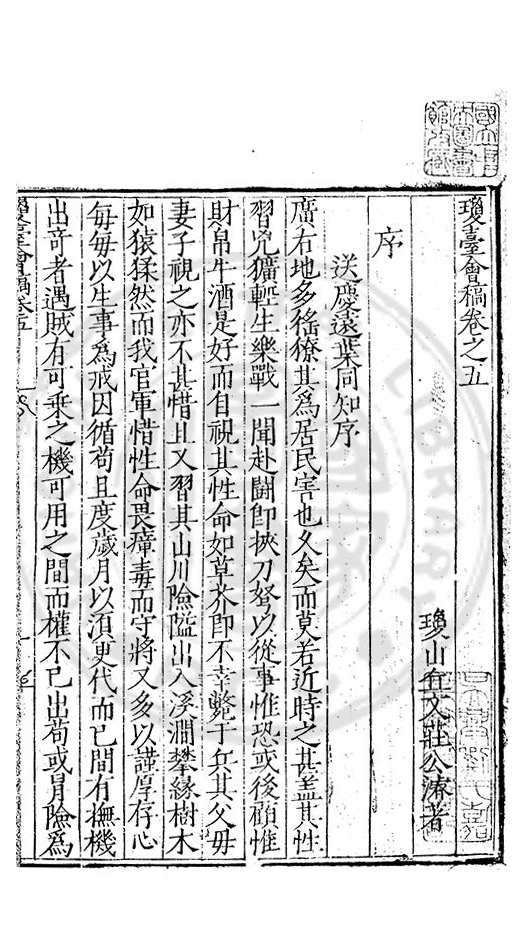 瓊臺會稿卷之五
瓊山丘文莊公濬著
序
送慶遠葉同知序
廣右地多徭獠其為居民害也久矣而莫若近時之甚盖其性
習兇獷輕生樂戰一聞赴鬪卽挾刀弩以從事惟恐或後顧惟
財帛牛酒是好而自視其性命如草芥卽不幸斃于兵其父毋
妻子視之亦不甚惜且又習其山川險隘出入溪澗攀緣樹木
如猿猱然而我官軍惜性命畏瘴毒而守將又多以謹厚存心
每每以生事為戒因循苟且度歲月以湏更代而已間有撫機
出竒者遇賊有可乗之機可用之間而權不己出苟或冒險為
瓊臺會稿卷五